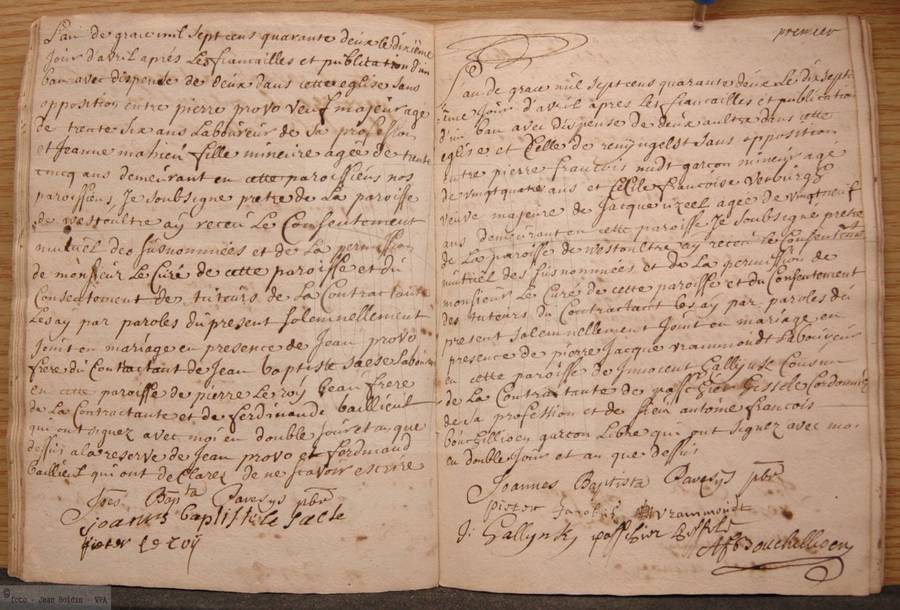 L'an de grace mil sept cens quarante deux le dixième
jour d'avril après les fiancailles et publication d'un
ban avec dispense de deux dans cette eglise sans
opposition entre pierre provo veuf majeur agé
de trente six ans Laboureur de sa profession
et Jeanne mahieu fille mineure agée de
cincq ans demeurant en cette paroisse nos
paroissiens, Je soubsigné pretre de La paroisse
de westoultre ay receu Le Consentement
mutuel des susnommées et de La permission
de monsieur Le Curé de cette paroisse et du
Consentement de tuteurs de La Contractante
Les ay par paroles du present solemnellement
joint en mariage en presence de Jean provo
frère du Contractant de Jean baptiste
en cette paroisse de pierre Le roy beau frere
de La Contractante et de ferdinande baillieul
qui ont signez avec moi en double Jour et an que
dessus a la reserve de Jean provo et ferdinand
baillieul qui ont declarez de ne scavoir escrire
Joes Bapta Paresys pbr
joannes baptiste le saese
pieter Le roÿ
premier
L'an de grace mil sept cens quarante deux Le dix sept
ième Jour d'avril après Les fiancailles et publication
d'un ban avec dispense de deux aultre dans cette
eglise et Celle de reninghelst sans opposition
entre pierre francois nudt garçon mineur agé
de vingt quatre ans et Cecile francoise verburgh
veuve majeure de Jacque uzeel agée de vingt neuf
ans demeurant en cette paroisse Je soubsigné pretre
de La paroisse de westoultre ay receu le Consentement
mutuel des susnommées et de La permission de
monsieur Le Curés de cette paroisse et du Consentement
des tuteurs du Contractant Les ay par paroles du
present solemnellement Joint en mariage en
presence de pierre Jacque vrammondt Laboureur
en cette paroisse de Innocent Gallynk Cousin
de La Contractante de passchier Cordonnier
de sa profession et de sieur antoine francois
bouchillioen garçon Libre qui ont signez avec moi
en double Jour et an que dessus
Joannes Baptista Paresys pbr
pieter Jacobus vrammondt
J: Gallynk passchier
AfBouchillioen
foto - Jean Boidin - VPA